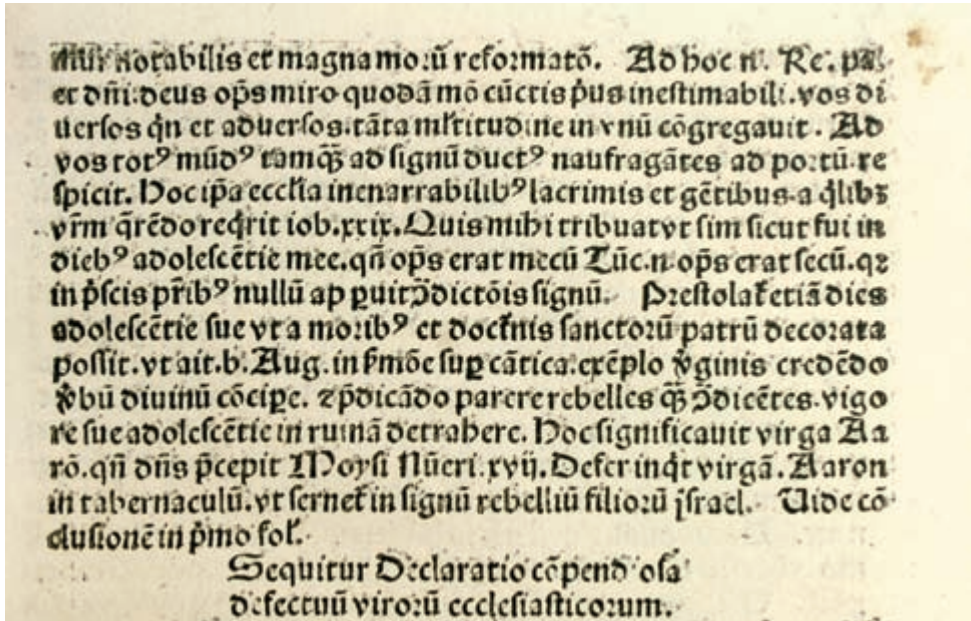 mur notabilis et magna moꝛū refoꝛmatō. Ad hoc n̄. Re. pa.
et dn̄i.deus op̄s miro quodā mō cūctis p̓us inestimabili.vos di
uersos q̓n et aduersos.tāta ml̓titudine in vnū cōgregauit. Ad
vos totꝰ mūdꝰ tamqꝫ̄ ad signū ductꝰ naufragātes ad poꝛtū.re
spicit. Hoc ip̄a eccl̓ia inenarrabilibꝰ lacrimis et gēitibus.a q̓libꝫ
vr̄m q̄rēdo req̓rit iob.xxix.Quis mihi tribuat vt sim sicut fui in
diebꝰ adolescētie mee.qn̄ op̄s erat mecū Tūc.n.op̄s erat secū.qꝛ
in p̓scis pr̄ibꝰ nullū ap ꝑuit ↄ̄dictōis signū. Prestolat̓ etiā dies
adolescētie sue vt a moribꝰ et doct̓nis sanctoꝛū patrū decorata
possit.vt ait.b.Aug.in f̓mōe suꝑ cātica.exēplo v̓ginis credēdo
v̓bū diuinū cōciꝑe. ⁊ p̄dicādo parere rebelles qꝫ̄ ↄ̄dicētes.vigo
re sue adolescētie in ruinā detrahere. Hoc significauit virga Aa
rō.qn̄ dn̄s p̄cepit Moysi Nūeri.xvij.Defer inq̓t virgā.Aaron
in tabernaculū.vt seruet̓ in signū rebelliū filioꝛū jsrael. Uide cō
clusionē in p̓mo fol̓.
Sequitur Declaratio cōpend̓ osa
defectuū viroꝛū ecclesiasticorum.